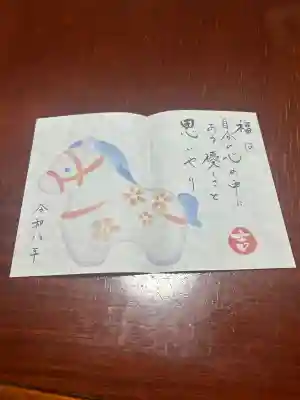 福は
自分の心の中に
ある優しさと
思いやり
令和八年
吉